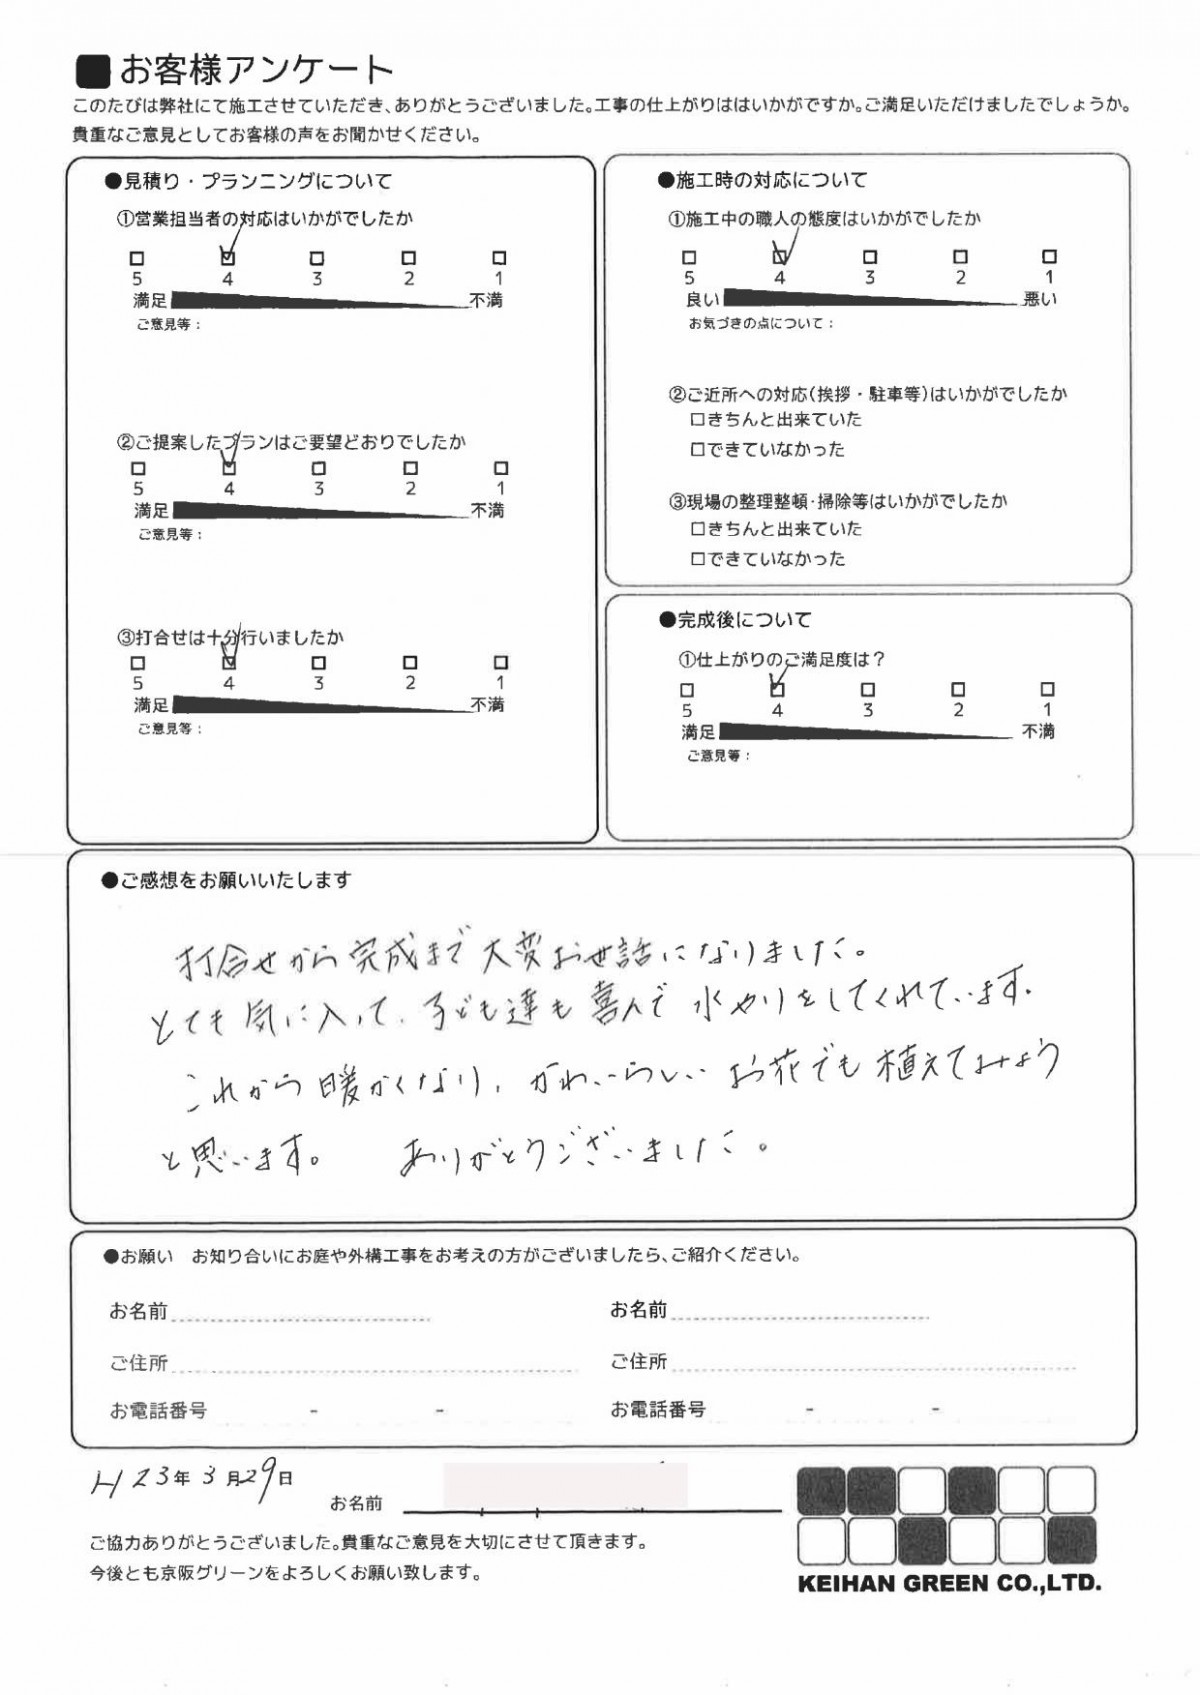 ■お客様アンケート
このたびは弊社にて施工させていただき、ありがとうございました。工事の仕上がりははいかがですか。ご満足いただけましたでしょうか。
貴重なご意見としてお客様の声をお聞かせください。
●見積り・プランニングについて
①営業担当者の対応はいかがでしたか
5 4 3 2 1
満足 不満
ご意見等：
②ご提案したプランはご要望どおりでしたか
5 4 3 2 1
満足 不満
ご意見等：
③打合せは十分行いましたか
5 4 3 2 1
満足 不満
ご意見等：
●施工時の対応について
①施工中の職人の態度はいかがでしたか
5 4 3 2 1
良い 悪い
お気づきの点について：
②ご近所への対応(挨拶・駐車等)はいかがでしたか
□きちんと出来ていた
□できていなかった
③現場の整理整頓・掃除等はいかがでしたか
□きちんと出来ていた
□できていなかった
●完成後について
①仕上がりのご満足度は？
5 4 3 2 1
満足 不満
ご意見等：
●ご感想をお願いいたします
打合せから完成まで大変お世話になりました。
とても気に入って、子ども達も喜んで水やりをしてくれています。
これから暖かくなり、かわいらしいお花でも植えてみよう
と思います。 ありがとうございました。
●お願い お知り合いにお庭や外構工事をお考えの方がございましたら、ご紹介ください。
お名前 お名前
ご住所 ご住所
お電話番号 - - お電話番号 - -
H23年3月29日
お名前
ご協力ありがとうございました。貴重なご意見を大切にさせて頂きます。
今後とも京阪グリーンをよろしくお願い致します。
KEIHAN GREEN CO.,LTD.